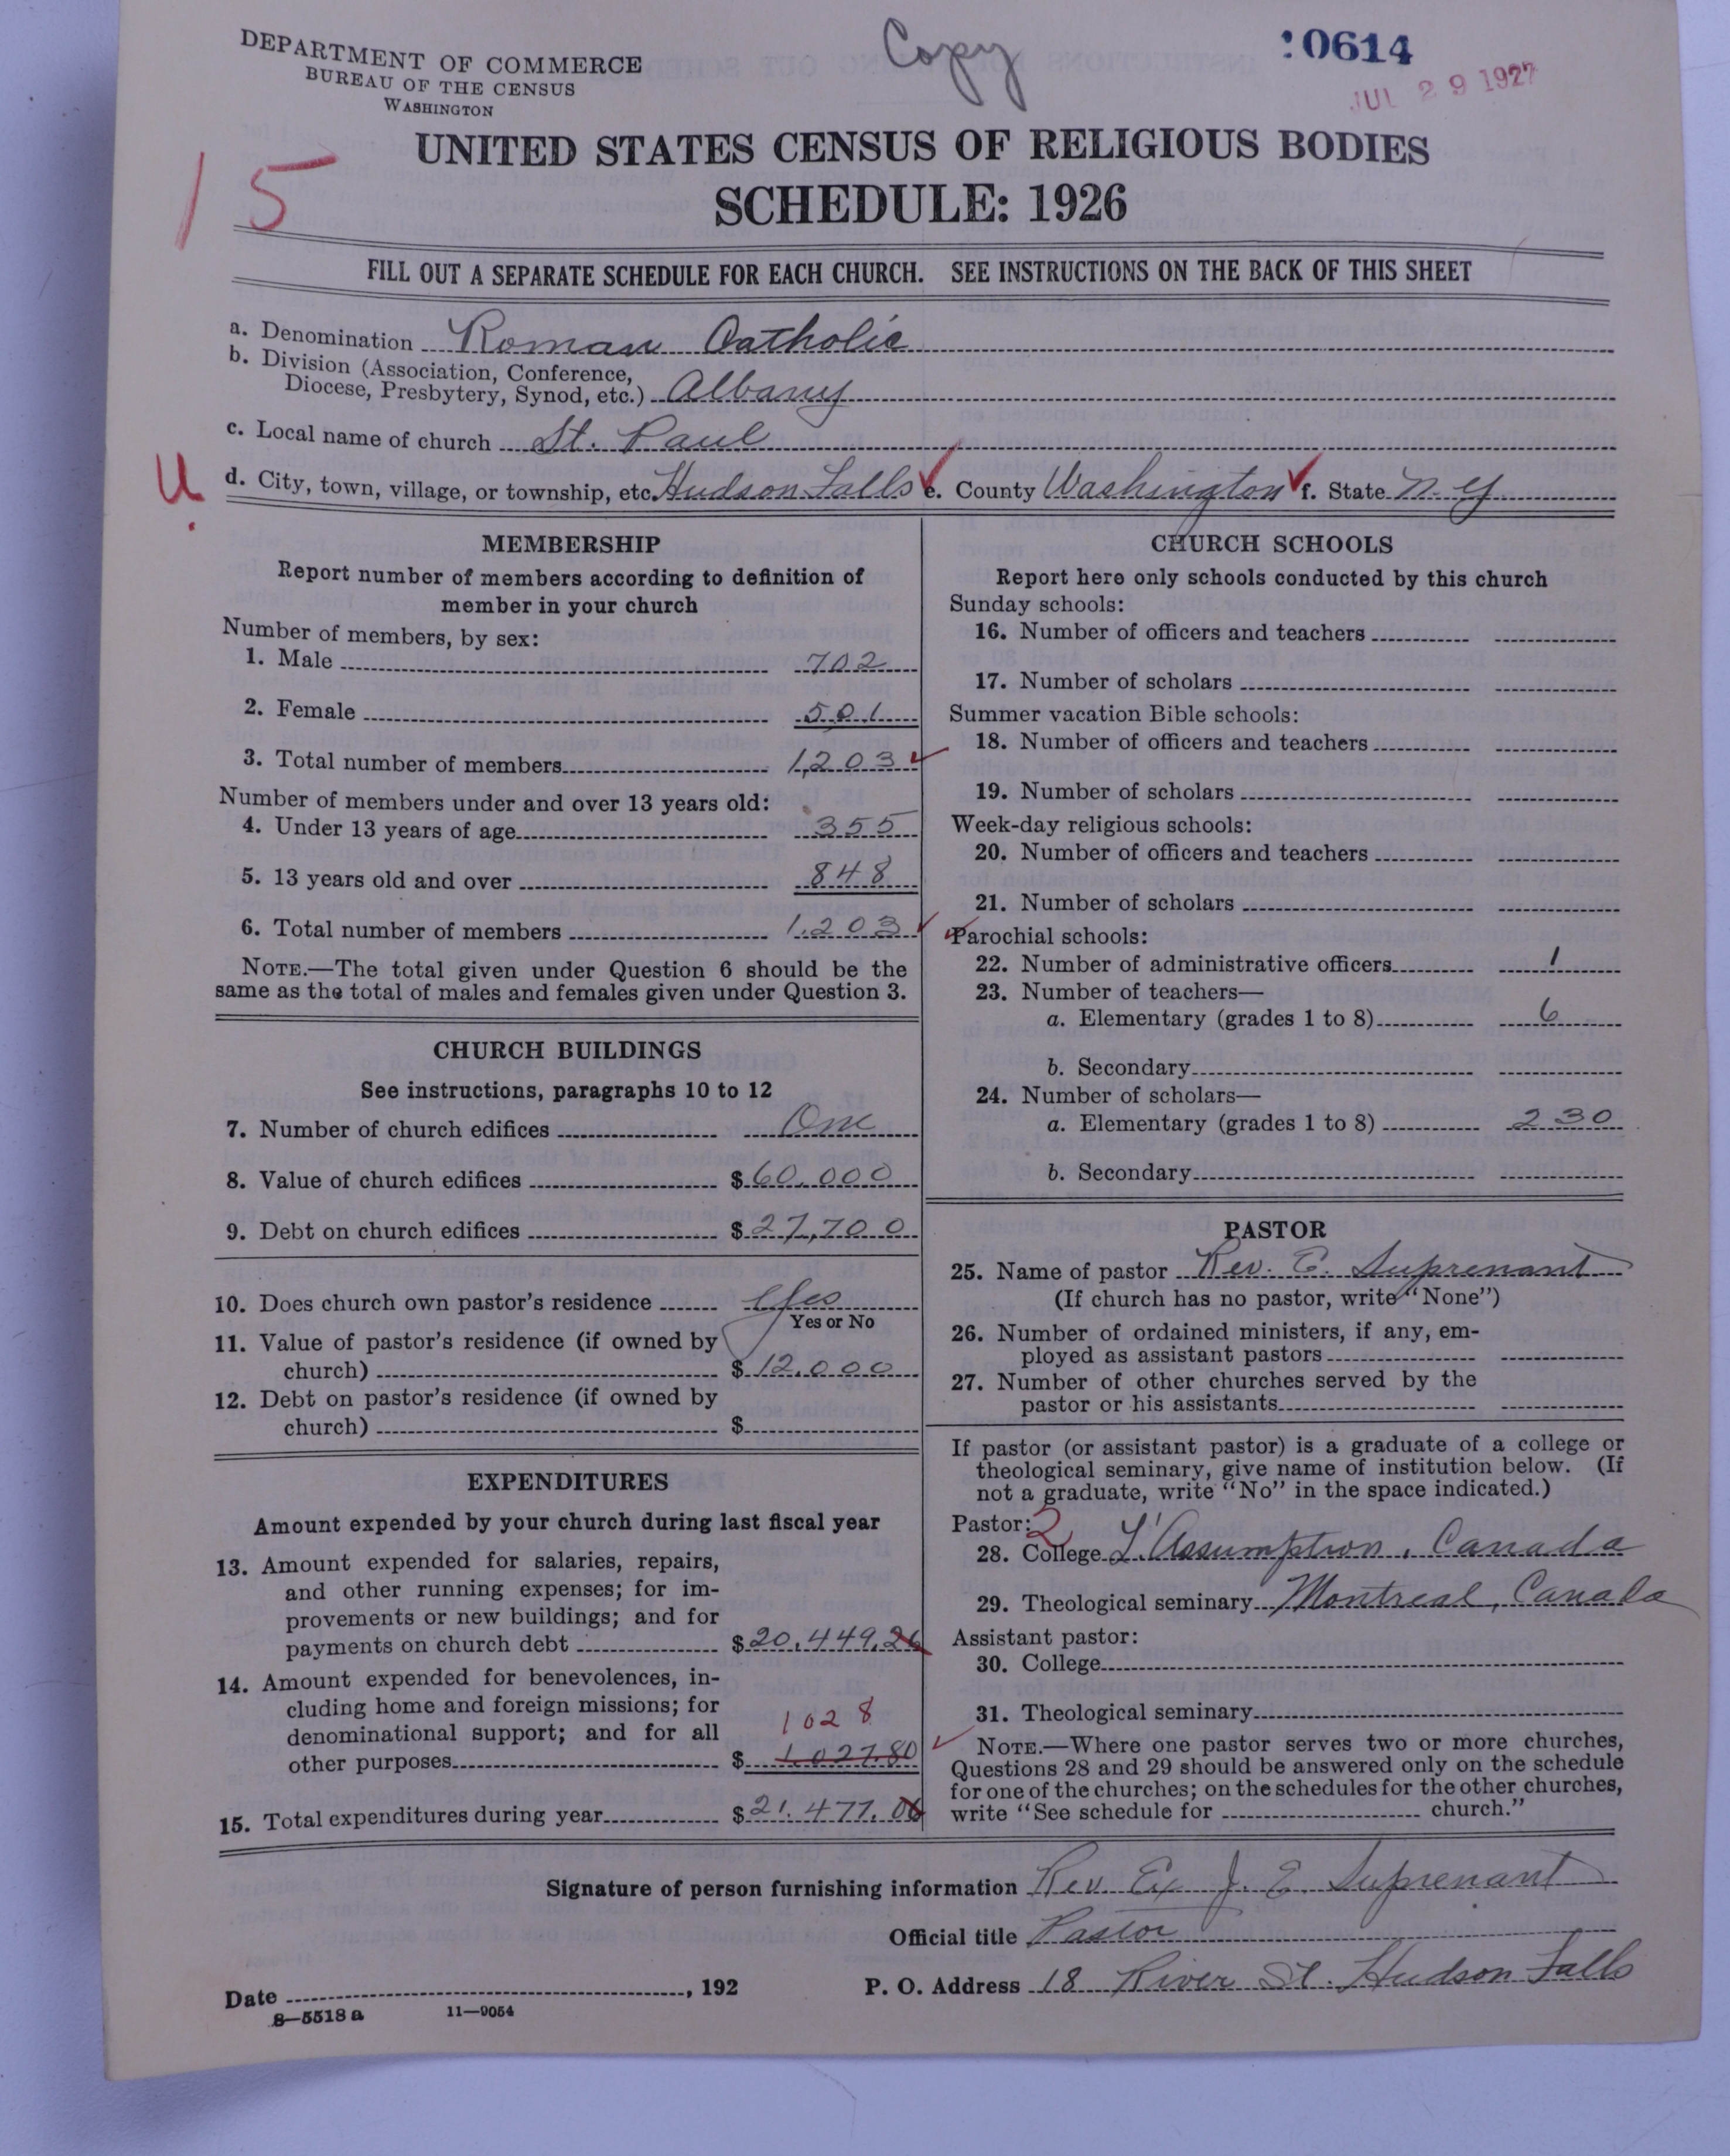 DEPARTMENT OF COMMERCE
BUREAU OF THE CENSUS
WASHINGTON
Copy
:0614
JUL 29 1927
15
UNITED STATES CENSUS OF RELIGIOUS BODIES
SCHEDULE: 1926
FILL OUT A SEPARATE SCHEDULE FOR EACH CHURCH. SEE INSTRUCTIONS ON THE BACK OF THIS SHEET
a. Denomination Roman Catholic
b. Division (Association, Conference,
Diocese, Presbytery, Synod, etc.) Albany
c. Local name of church St. Paul
U.
d. City, town, village, or township, etc. Hudson Falls e. County Washington f. State N.Y
MEMBERSHIP
Report number of members according to definition of
member in your church
Number of members, by sex:
1. Male 702
2. Female 501
3. Total number of members 1,203
Number of members under and over 13 years old:
4. Under 13 years of age 355
5. 13 years old and over 848
6. Total number of members 1,203
NOTE.—The total given under Question 6 should be the
same as the total of males and females given under Question 3.
CHURCH BUILDINGS
See instructions, paragraphs 10 to 12
7. Number of church edifices One
8. Value of church edifices $60,000
9. Debt on church edifices $27,700
10. Does church own pastor's residence Yes
Yes or No
11. Value of pastor's residence (if owned by
church) $12,000
12. Debt on pastor's residence (if owned by
church) $
EXPENDITURES
Amount expended by your church during last fiscal year
13. Amount expended for salaries, repairs,
and other running expenses; for im-
provements or new buildings; and for
payments on church debt $20,449.26
14. Amount expended for benevolences, in-
cluding home and foreign missions; for
denominational support; and for all
1028
other purposes $1,027.80
15. Total expenditures during year $21,477.06
CHURCH SCHOOLS
Report here only schools conducted by this church
Sunday schools:
16. Number of officers and teachers
17. Number of scholars
Summer vacation Bible schools:
18. Number of officers and teachers
19. Number of scholars
Week-day religious schools:
20. Number of officers and teachers
21. Number of scholars
Parochial schools:
22. Number of administrative officers 1
23. Number of teachers—
a. Elementary (grades 1 to 8) 6
b. Secondary
24. Number of scholars—
a. Elementary (grades 1 to 8) 230
b. Secondary
PASTOR
25. Name of pastor Rev. E. Suprenant
(If church has no pastor, write "None")
26. Number of ordained ministers, if any, em-
ployed as assistant pastors
27. Number of other churches served by the
pastor or his assistants
If pastor (or assistant pastor) is a graduate of a college or
theological seminary, give name of institution below. (If
not a graduate, write "No" in the space indicated.)
Pastor: 2
28. College L'Assumption, Canada
29. Theological seminary Montreal, Canada
Assistant pastor:
30. College
31. Theological seminary
NOTE.—Where one pastor serves two or more churches,
Questions 28 and 29 should be answered only on the schedule
for one of the churches; on the schedules for the other churches,
write "See schedule for church."
Signature of person furnishing information Rev. J. E Suprenant
Official title Pastor
Date , 192
P. O. Address 18 River St. Hudson Falls
8—5518 a 11—9054